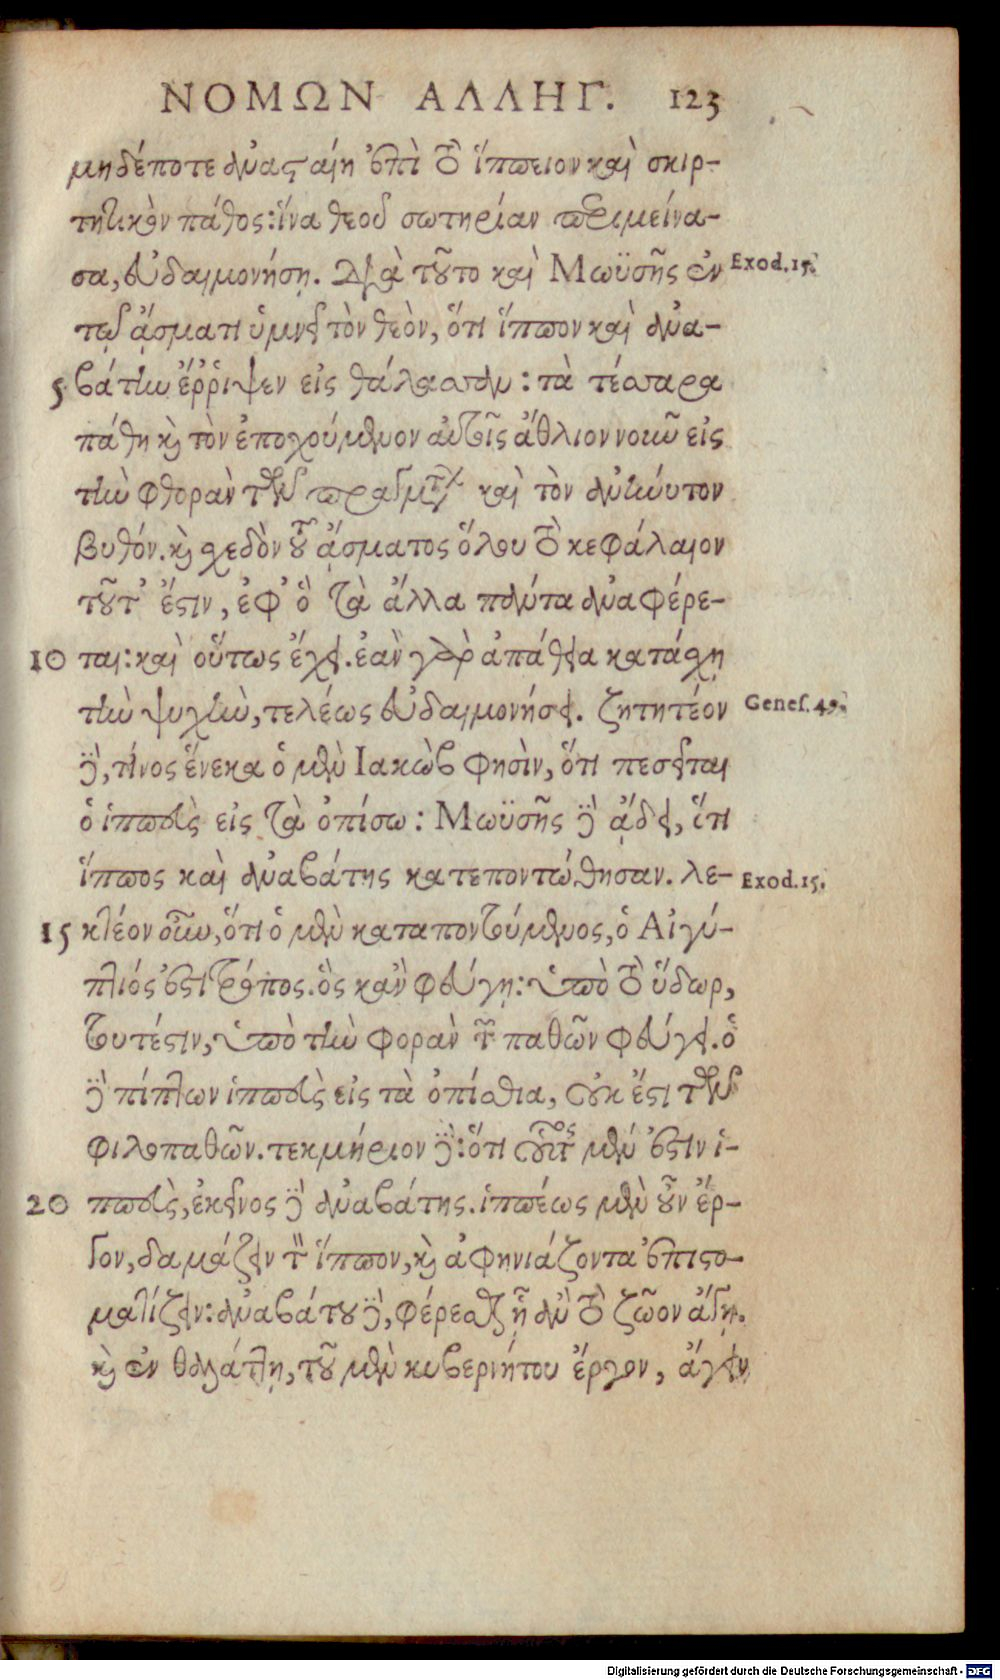 ΝΟΜΩΝ ΑΛΛΗΓ. 123
μηδέποτε ἀναϛαίη ἐπὶ τὸ ἵππειον καὶ σκιρ-
τητικὸν πάθος: ἵνα θεοῦ σωτηρίαν περιμείνα-
σα, εὐδαιμονήσῃ. Διὰ τοῦτο καὶ Μωϋσῆς ἐν
Exod. 15.
τῷ ᾄσματι ὑμνεῖ τὸν θεὸν, ὅτι ἵππον καὶ ἀνα-
5 βάτην ἔῤῥιψεν εἰς θάλασσαν: τὰ τέσσαρα
πάθη καὶ τὸν ἐποχούμενον αὐτοῖς ἄθλιον νοῦν εἰς
τὴν φθορὰν τῶν πραγμάτων καὶ τὸν ἀνήνυτον
βυθόν. καὶ σχεδὸν τοῦ ᾄσματος ὅλου τὸ κεφάλαιον
τοῦτ' ἔϛιν, ἐφ' ὃ τὰ ἄλλα πάντα ἀναφέρε-
10 ται: καὶ οὕτως ἔχει. ἐὰν γὰρ ἀπάθεια κατάσχῃ
τὴν ψυχὴν, τελέως εὐδαιμονήσει. ζητητέον
Genes. 49.
δὲ, τίνος ἕνεκα ὁ μὲν Ιακὼβ φησὶν, ὅτι πεσεῖται
ὁ ἱππεὺς εἰς τὰ ὀπίσω: Μωϋσῆς δὲ ᾄδει, ὅτι
ἵππος καὶ ἀναβάτης κατεποντώθησαν. λε-
Exod. 15.
15 κτέον οὖν, ὅτι ὁ μὲν καταποντούμενος, ὁ Αἰγύ-
πτιός ἐϛι τρόπος. ὃς κἂν φεύγῃ: ὑπὸ τὸ ὕδωρ,
τουτέϛιν, ὑπὸ τὴν φορὰν τῶν παθῶν φεύγει. ὁ
δὲ πίπτων ἱππεὺς εἰς τὰ ὀπίσθια, οὐκ ἔϛι τῶν
φιλοπαθῶν. τεκμήριον δέ: ὅτι οὗτος μέν ἐϛιν ἱ-
20 ππεὺς, ἐκεῖνος δὲ ἀναβάτης. ἱππέως μὲν οὖν ἔρ-
γον, δαμάζειν τὸν ἵππον, καὶ ἀφηνιάζοντα ἐπιϛο-
μίζειν: ἀναβάτου δὲ, φέρεσθαι ᾗ ἂν τὸ ζῶον ἄγῃ.
καὶ ἐν θαλάττῃ, τοῦ μὲν κυβερνήτου ἔργον, ἄγειν
Digitalisierung gefördert durch die Deutsche Forschungsgemeinschaft - DFG